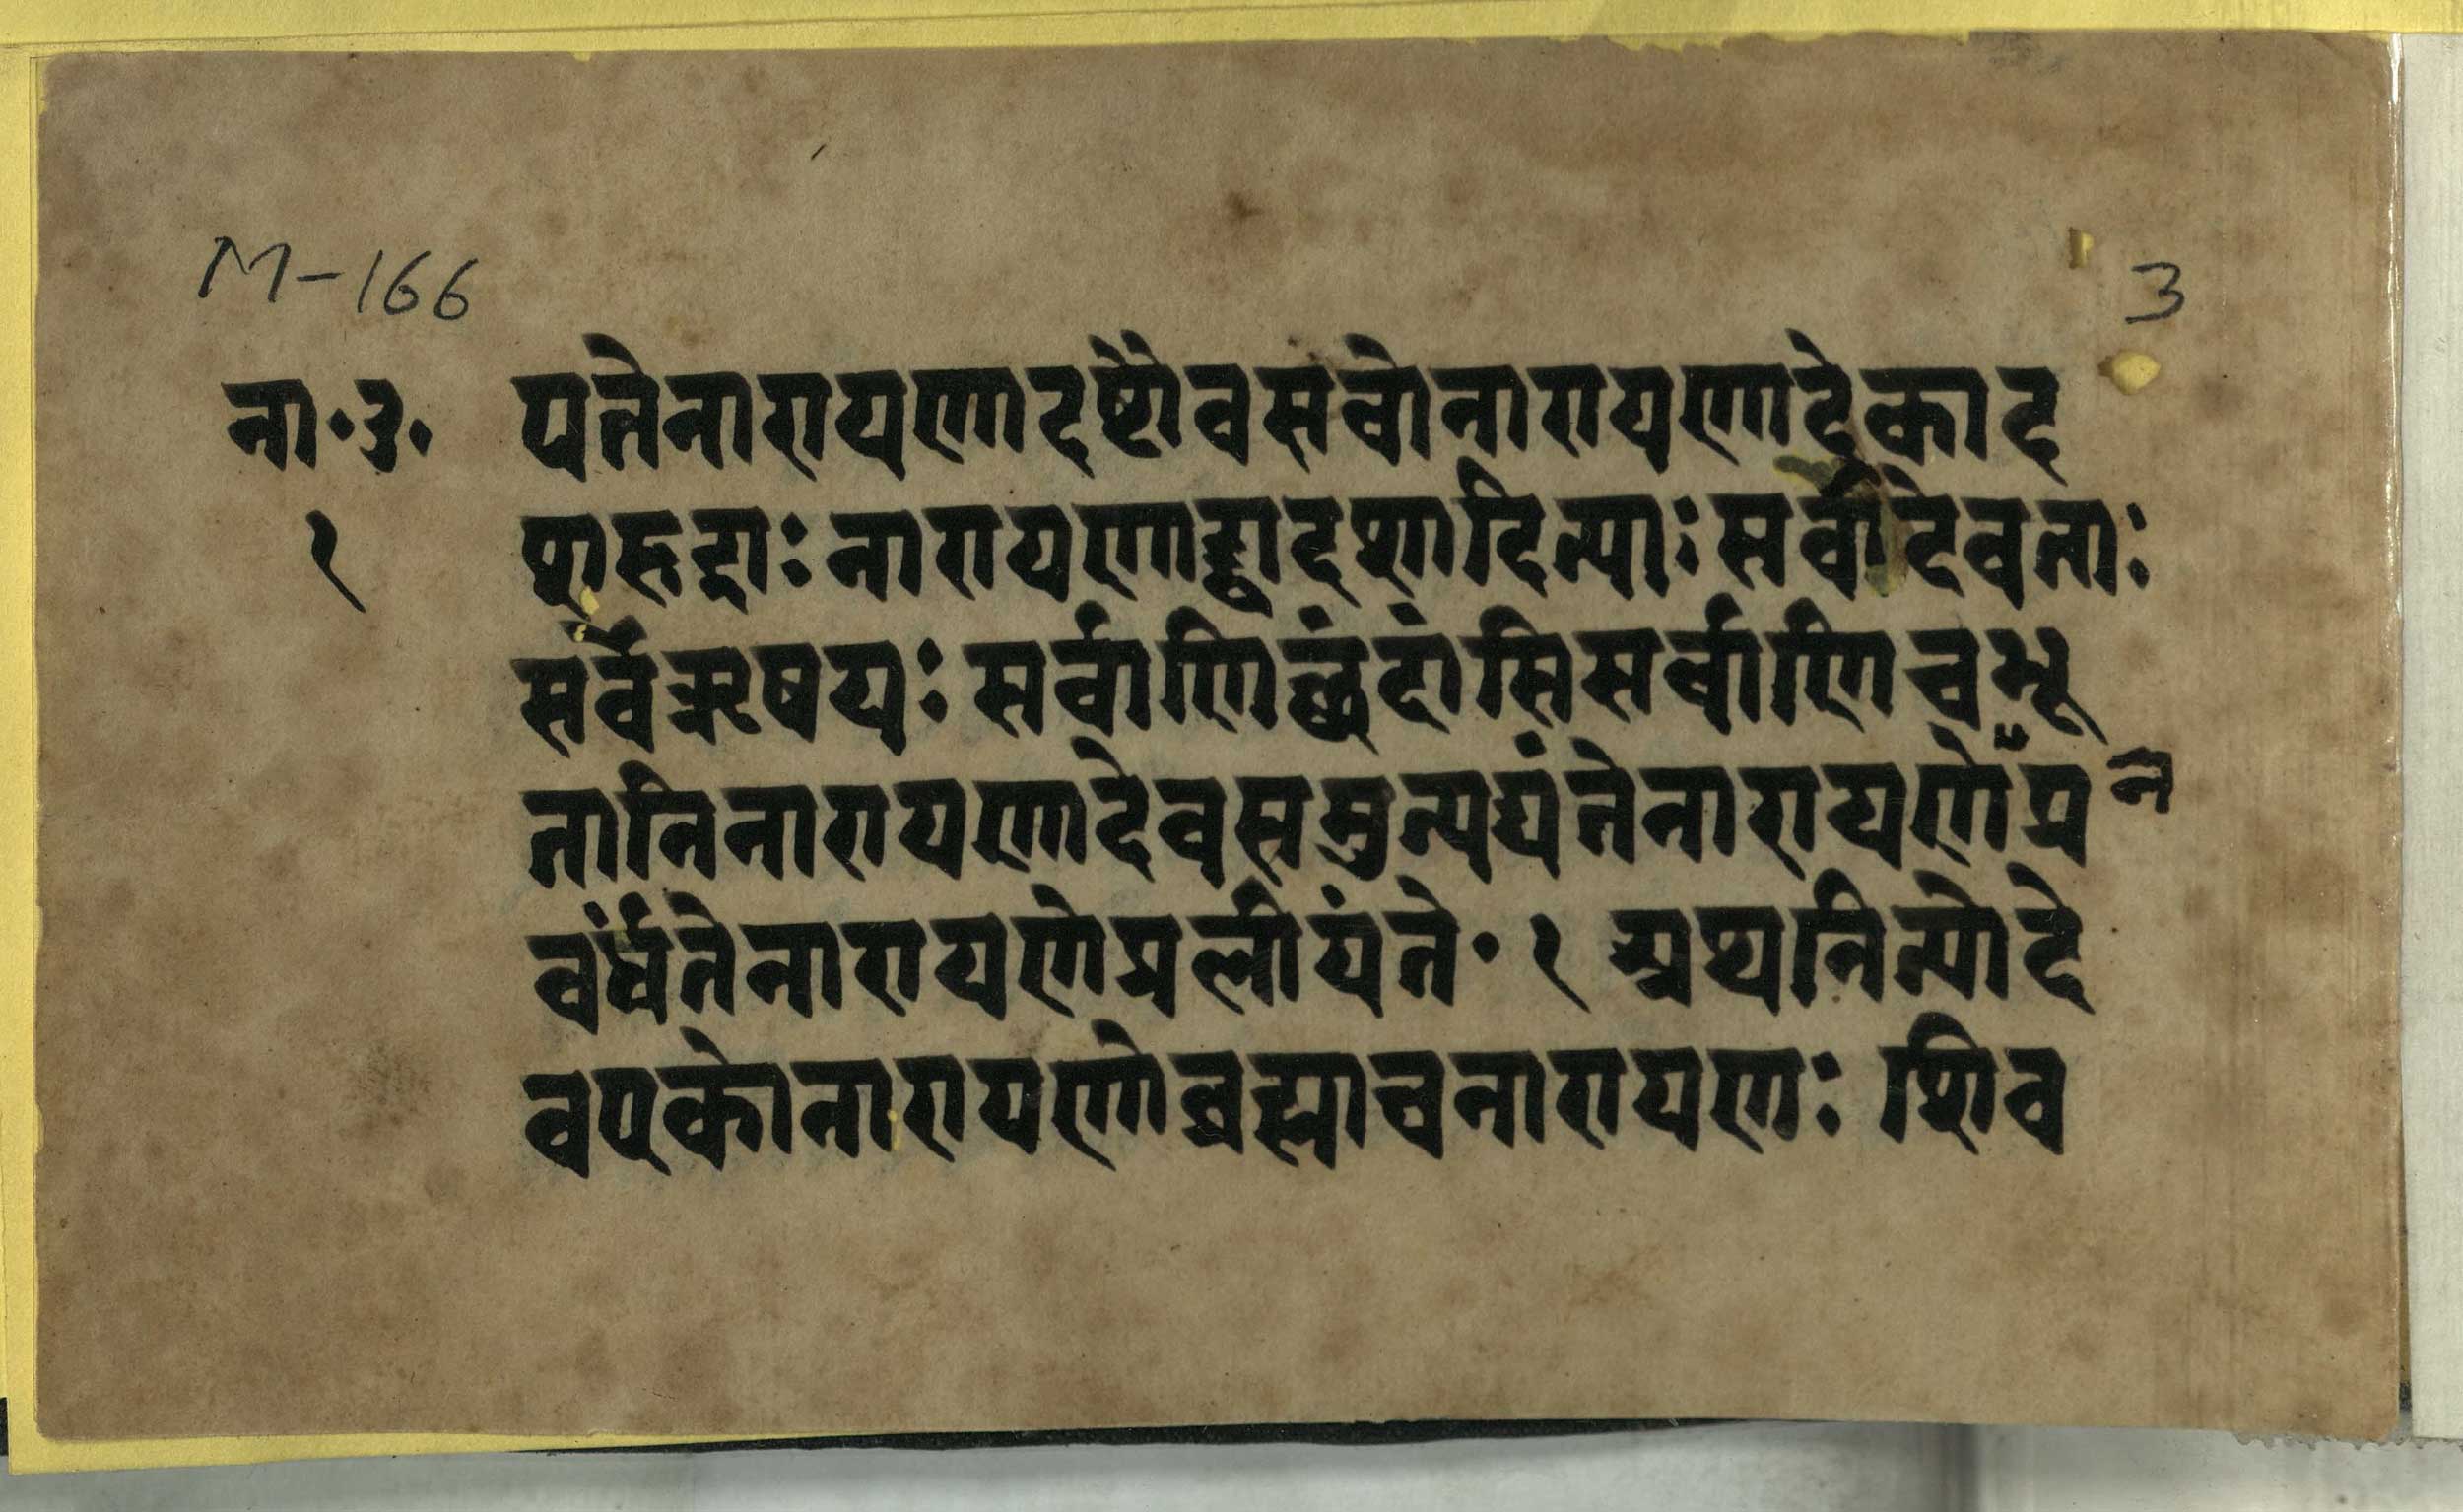 M-166
3
ना॰उ॰ यतेनारायणादष्टौवसवोनारायणादेकाद
१ शरुद्राः नारायणाद्द्वादशादित्याः सर्वादेवताः
सर्वेऋषयः सर्वाणिछंदांसिसर्वाणिचभू
तानिनारायणादेवसमुत्पद्यंतेनारायणेप्र न
वर्धंतेनारायणेप्रलीयंते॰ १ अथनित्योदे
वएकोनारायणोब्रह्माचनारायणः शिव